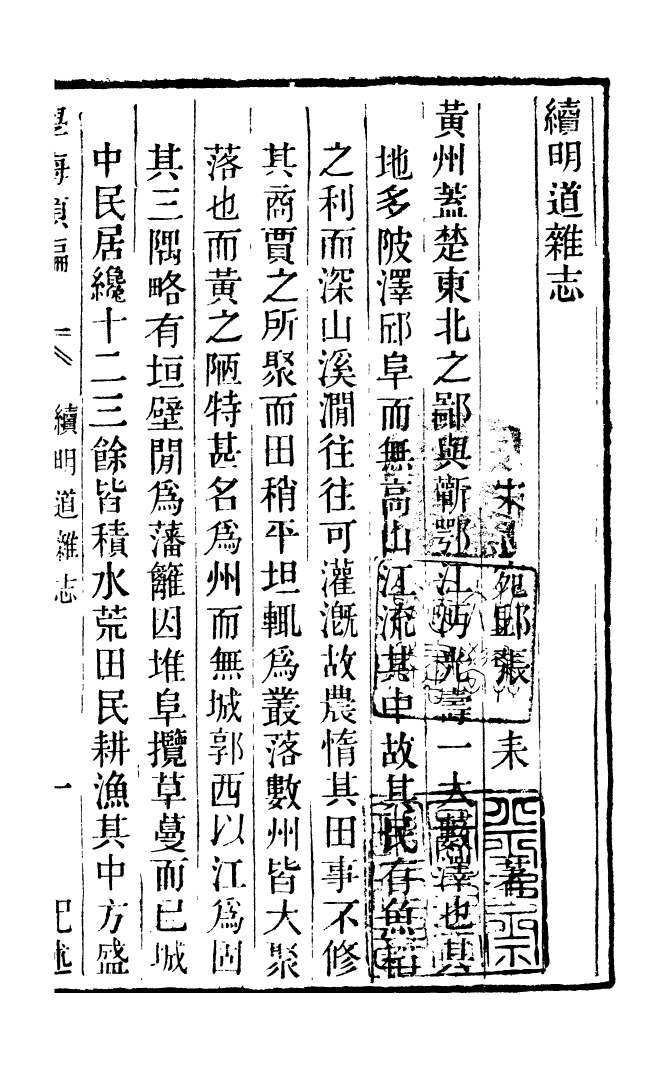 續明道雜志
宋 宛邱張 耒 著
黃州蓋楚東北之鄙與蘄鄂江沔光壽一大藪澤也其
地多陂澤邱阜而無高山江流其中故其民存魚稻
之利而深山溪澗往往可灌漑故農惰其田事不修
其商賈之所聚而田稍平坦輒爲叢落數州皆大聚
落也而黃之陋特甚名爲州而無城郭西以江爲固
其三隅略有垣壁閒爲藩籬因堆阜攬草蔓而已城
中民居纔十二三餘皆積水荒田民耕漁其中方盛
學海類編 續明道雜志 一 記述